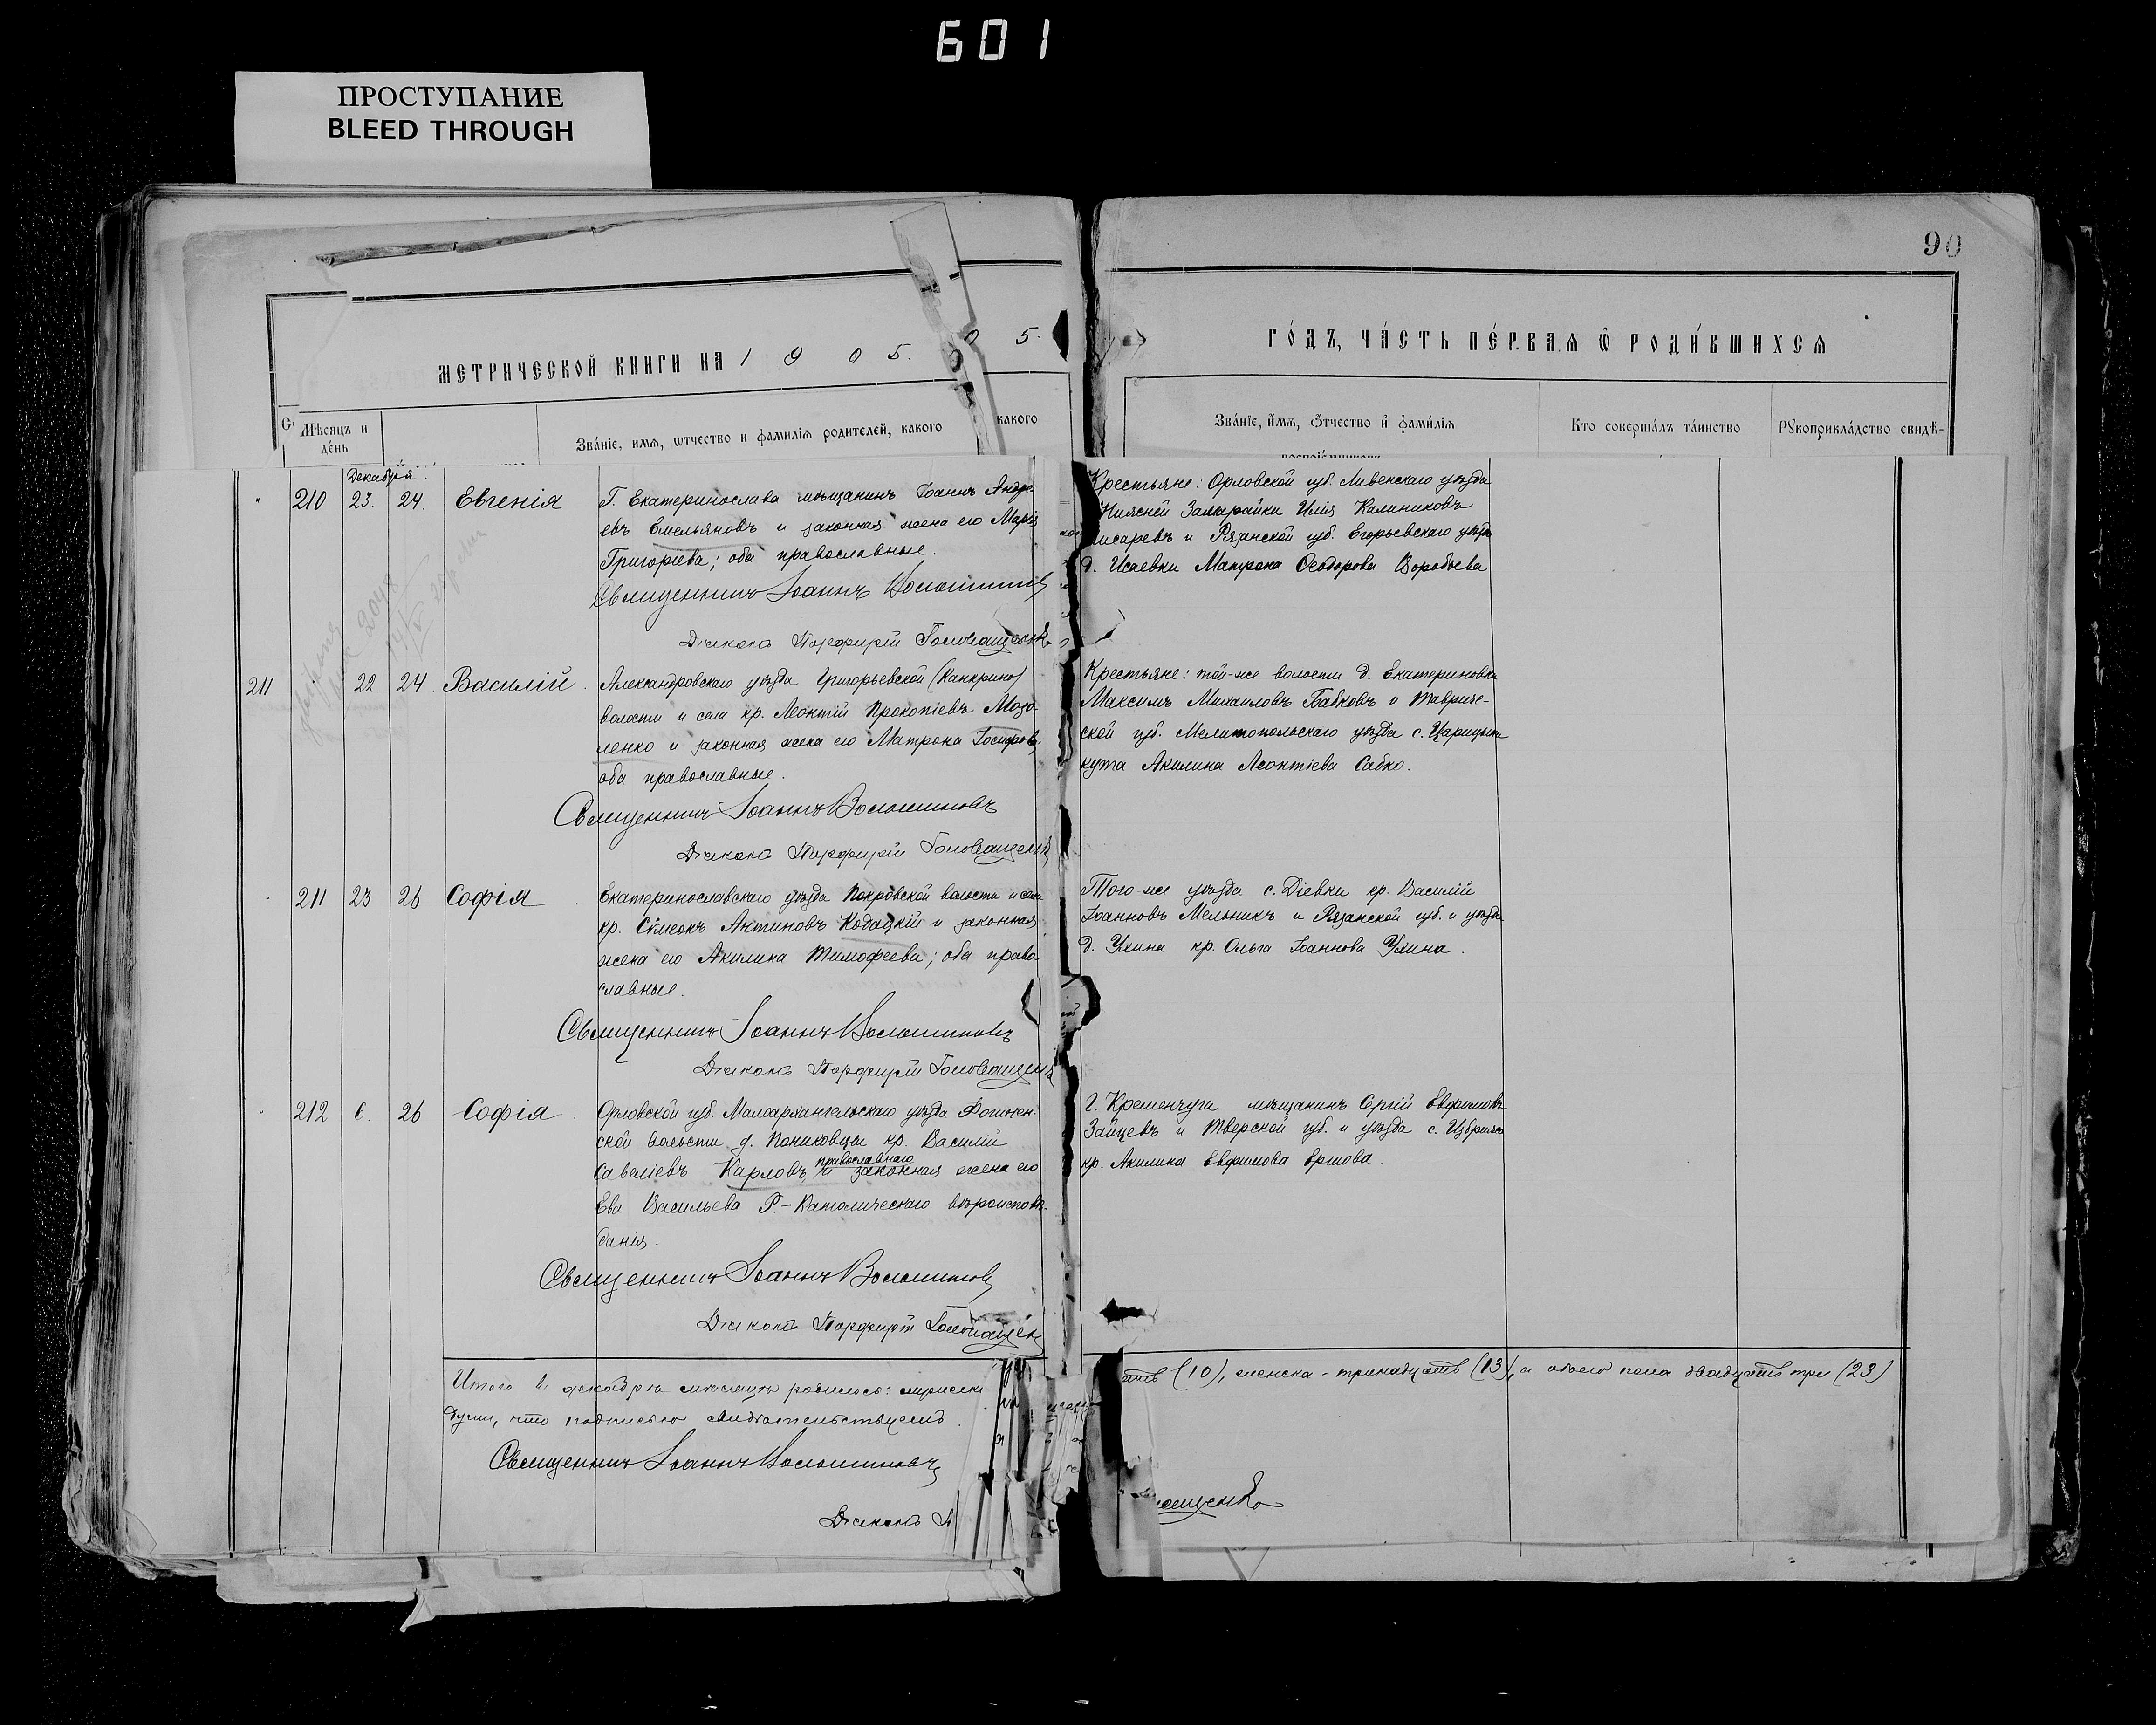 601
ПРОСТУПАНИЕ
BLEED THROUGH
90
МЕТРИЧЕСКОЙ КНИГИ НА 1 9 0 5.
0 5.
ГО́ДЪ, ЧА́СТЬ ПЕ́РВАЯ Ѿ РОДИ́ВШИХСЯ
Мѣсяцъ и
де́нь
Зва́нїе, имя, ѡтчество и фамилїя родителей, какого
какого
Зва́нїе, и҆́мя, ѻ҆́тчество и҆ фами́лїя
Кто соверша́лъ та́инство
Рꙋкоприкла́дство свидѣ-
Декабрь.
210 23. 24. Евгенія
Г. Екатеринослава мѣщанинъ Іоаннъ Андре-
евъ Емельяновъ и законная жена его Марія
Григорьева; оба православные.
Священникъ Іоаннъ Волошиновъ
Діаконъ Порфирій Головащенко
Крестьяне: Орловской губ. Ливенскаго уѣзда
Илія Калиниковъ
и Рязанской губ. Егорьевскаго уѣзда
д. Исаевки Матрона Ѳеодорова Воробьева
211 22. 24. Василій.
Александровскаго уѣзда Григорьевской (Канкрино)
волости и села кр. Леонтій Прокопіевъ Мозо-
ленко и законная жена его Матрона
оба православные.
Священникъ Іоаннъ Волошиновъ
Діаконъ Порфирій Головащенко
Крестьяне: той-же волости д. Екатериновки
Максимъ Михаиловъ Бабковъ и Тавриче-
ской губ. Мелитопольскаго уѣзда с. Царицына
кута Акилина Леонтіева Сабко.
211 23 26 Софія.
Екатеринославскаго уѣзда Покровской волости и села
кр. Сѵмеонъ Антиповъ Кодацкій и законная
жена его Акилина Тимофеева; оба право-
славные.
Священникъ Іоаннъ Волошиновъ
Діаконъ Порфирій Головащенко
Того-же уѣзда с. Діевки кр. Василій
Іоанновъ Мельникъ и Рязанской губ. и уѣзда
д. Ухина кр. Ольга Іоаннова Ухина.
212 6. 26 Софія.
Орловской губ. Малоархангельскаго уѣзда
ской волости д. Пониковцы кр. Василій
православнаго
Савеліевъ Карловъ, и законная жена его
Ева Васильева Р.-Католическаго вѣроисповѣ-
данія.
Священникъ Іоаннъ Волошиновъ
Діаконъ Порфирій Головащен
Г. Кременчуга мѣщанинъ Сергій Евфимовъ
Зайцевъ и Тверской губ. и уѣзда с.
кр. Акилина Евфимова Ершова.
Итого въ декабрѣ мѣсяцѣ родилось: мужеска
ять (10), женска - тринадцать (13), а обоего пола двадцать три (23)
души, что подписью свидѣтельствуемъ.
Священникъ Іоаннъ Волошиновъ
Діаконъ П
ащенко